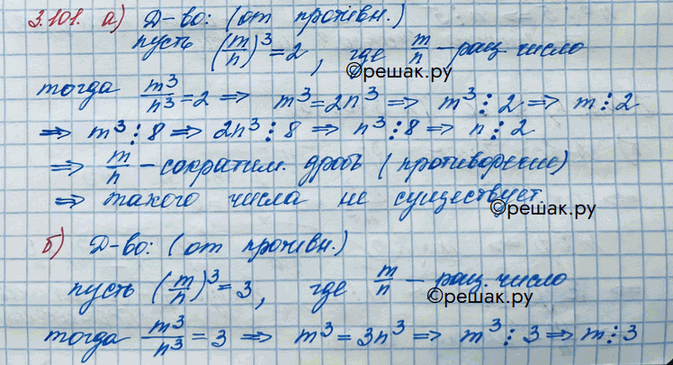 3.101. а) Д-во: (от противн.)
пусть (m/n)³ = 2, где m/n - рац. число
©решак.ру
тогда m³/n³ = 2 ⇒ m³ = 2n³ ⇒ m³ ⋮ 2 ⇒ m ⋮ 2
⇒ m³ ⋮ 8 ⇒ 2n³ ⋮ 8 ⇒ n³ ⋮ 8 ⇒ n ⋮ 2
⇒ m/n - сократим. дробь (противоречие)
⇒ такого числа не существует.
©решак.ру
б) Д-во: (от противн.)
пусть (m/n)³ = 3, где m/n - рац. число
©решак.ру
тогда m³/n³ = 3 ⇒ m³ = 3n³ ⇒ m³ ⋮ 3 ⇒ m ⋮ 3